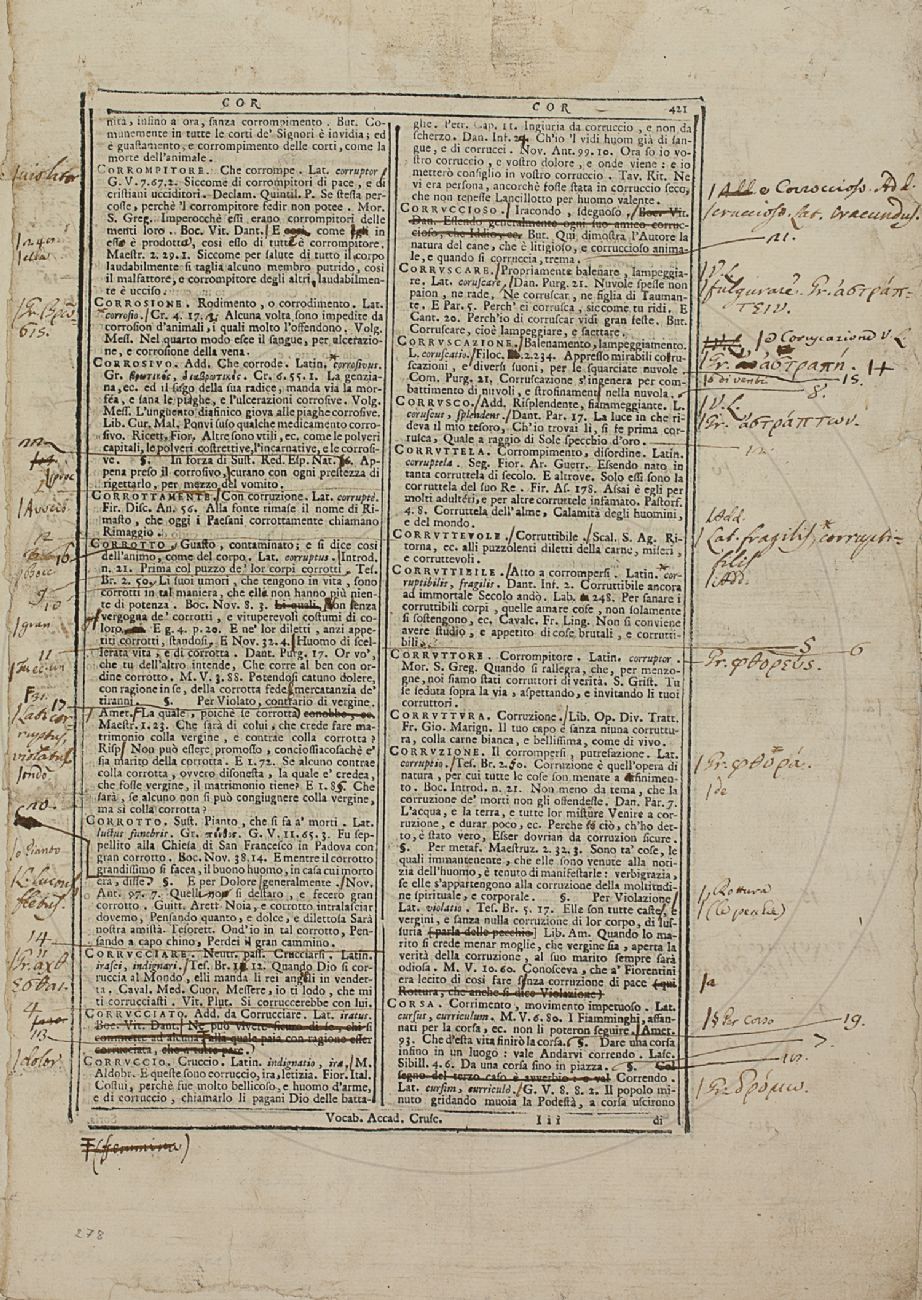 COR
COR
421
nità, infino a ora, sanza corrompimento. But. Co-
munemente in tutte le corti de' Signori è invidia; ed
è guastamento, e corrompimento delle corti, come la
morte dell'animale.
CORROMPITORE. Che corrompe. Lat. corruptor
G. V. 7. 67. 2. Siccome di corrompitori di pace, e di
cristiani ucciditori. Declam. Quintil. P. Se stessa per-
cosse, perchè 'l corrompitore fedir non potee. Mor.
S. Greg. Imperocchè essi erano corrompitori delle
menti loro. Boc. Vit. Dant. E come in
esso è prodotto, così esso di tutte è corrompitore.
Maestr. 2. 29. 1. Siccome per salute di tutto il corpo
laudabilmente si taglia alcuno membro putrido, così
il malfattore, e corrompitore degli altri, laudabilmen-
te è ucciso.
CORROSIONE. Rodimento, o corrodimento. Lat.
corrosio. Cr. 4. 17. 3. Alcuna volta sono impedite da
corrosion d'animali, i quali molto l'offendono. Volg.
Mess. Nel quarto modo esce il sangue, per ulcerazio-
ne, e corrosione della vena.
CORROSIVO. Add. Che corrode. Latin. corrosivus.
Gr. Cr. 6. 55. 1. La genzia-
na, ec. ed il sugo della sua radice, manda via la mor-
féa, e sana le piaghe, e l'ulcerazioni corrosive. Volg.
Mess. L'unguento diafinico giova alle piaghe corrosive.
Lib. Cur. Mal. Ponvi suso qualche medicamento corro-
sivo. Ricett. Fior. Altre sono utili, ec. come le polveri
capitali, le polveri costrettive, l'incarnative, e le corrosi-
ve. §. In forza di Sust. Red. Esp. Nat. Ap-
pena preso il corrosivo, curano con ogni prestezza di
rigettarlo, per mezzo del vomito.
CORROTTAMENTE. Con corruzione. Lat. corruptè.
Fir. Disc. An. 56. Alla fonte rimase il nome di Ri-
masto, che oggi i Paesani corrottamente chiamano
Rimaggio.
CORROTTO. Guasto, contaminato; e si dice così
dell'animo, come del corpo. Lat. corruptus. Introd.
n. 21. Prima col puzzo de' lor corpi corrotti. Tes.
Br. 2. 50. Li suoi umori, che tengono in vita, sono
corrotti in tal maniera, che elle non hanno più nien-
te di potenza. Boc. Nov. 8. 3. Li quali, non senza
vergogna de' corrotti, e vituperevoli costumi di co-
loro E g. 4. p. 20. E ne' lor diletti, anzi appe-
titi corrotti, standosi. E Nov. 32. 4. Huomo di scel-
lerata vita, e di corrotta. Dant. Purg. 17. Or vo',
che tu dell'altro intende, Che corre al ben con or-
dine corrotto. M. V. 3. 88. Potendosi catuno dolere,
con ragione in se, della corrotta fede, mercatanzia de'
tiranni. §. Per Violato, contrario di vergine.
Amet. La quale, poichè se corrotta conobbe, ec.
Maestr. 1. 23. Che sarà di colui, che crede fare ma-
trimonio colla vergine, e contrae colla corrotta?
Risp. Non può essere promosso, conciossiacosachè e'
sia marito della corrotta. E 1. 72. Se alcuno contrae
colla corrotta, ovvero disonesta, la quale e' credea,
che fosse vergine, il matrimonio tiene? E 1. 85. Che
sarà, se alcuno non si può congiugnere colla vergine,
ma sì colla corrotta?
CORROTTO. Sust. Pianto, che si fa a' morti. Lat.
luctus funebris. Gr. G. V. 11. 65. 3. Fu sep-
pellito alla Chiesa di San Francesco in Padova con
gran corrotto. Boc. Nov. 38. 14. E mentre il corrotto
grandissimo si facea, il buono huomo, in casa cui morto
era, disse? §. E per Dolore generalmente. Nov.
Ant. 97. 7. Quella non si destaro, e fecero gran
corrotto. Guitt. Arett. Noia, e corrotto intralasciar
dovemo, Pensando quanto, e dolce, e dilettosa Sarà
nostra amistà. Tesorett. Ond'io in tal corrotto, Pen-
sando a capo chino, Perdei il gran cammino.
CORRVCCIARE. Neutr. pass. Crucciarsi. Latin.
irasci, indignari. Tes. Br. 12. Quando Dio si cor-
ruccia al Mondo, elli manda li rei angeli in vendet-
ta. Caval. Med. Cuor. Messere, io ti lodo, che mi
ti corrucciasti. Vit. Plut. Si corruccerebbe con lui.
CORRVCCIATO. Add. da Corrucciare. Lat. iratus.
Boc. Vit. Dant. Ne può vivere sicuro di se, chi si
commette ad alcuna, alla quale paia con ragione esser
corrucciata, che a talte paia.
CORRVCCIO. Cruccio. Latin. indignatio, ira. M.
Aldobr. E queste sono corruccio, ira, letizia. Fior. Ital.
Costui, perchè fue molto bellicoso, e huomo d'arme,
e di corruccio, chiamarlo li pagani Dio delle batta-
glie. Petr. Cap. 11. Ingiuria da corruccio, e non da
scherzo. Dan. Inf. 24. Ch'io 'l vidi huom già di san-
gue, e di corrucci. Nov. Ant. 99. 10. Ora so io vo-
stro corruccio, e vostro dolore, e onde viene: e io
metterò consiglio in vostro corruccio. Tav. Rit. Ne
vi era persona, ancorchè fosse stata in corruccio seco,
che non tenesse Lancillotto per huomo valente.
CORRVCCIOSO. Iracondo, sdegnoso. Boc. Vit.
Dan. Essendo generalmente ogni suo amico corruc-
cioso, che Iddio, ec. But. Qui dimostra l'Autore la
natura del cane, che è litigioso, e corruccioso anima-
le, e quando si corruccia, trema.
CORRVSCARE. Propriamente balenare, lampeggia-
re. Lat. coruscare. Dan. Purg. 21. Nuvole spesse non
paion, ne rade, Ne coruscar, ne figlia di Tauman-
te. E Par. 5. Perch' ei corrusca, siccome tu ridi. E
Cant. 20. Perch'io di corruscar vidi gran feste. But.
Corruscare, cioè lampeggiare, e saettare.
CORRVSCAZIONE. Balenamento, lampeggiamento.
L. coruscatio. Filoc. 2. 234. Appresso mirabili corru-
scazioni, e diversi suoni, per le squarciate nuvole.
Com. Purg. 21. Corruscazione s'ingenera per com-
battimento di nuvoli, e strofinamenti nella nuvola.
CORRVSCO. Add. Risplendente, fiammeggiante. L.
coruscus, splendens. Dant. Par. 17. La luce in che ri-
deva il mio tesoro, Ch'io trovai lì, si fe prima cor-
rusca, Quale a raggio di Sole specchio d'oro.
CORRVTTELA. Corrompimento, disordine. Latin.
corruptela. Seg. Fior. Ar. Guerr. Essendo nato in
tanta corruttela di secolo. E altrove. Solo essi sono la
corruttela del suo Re. Fir. As. 178. Assai è egli per
molti adulteri, e per altre corruttele infamato. Pastorf.
4. 8. Corruttela dell'alme, Calamita degli huomini,
e del mondo.
CORRVTTEVOLE. Corruttibile. Scal. S. Ag. Ri-
torna, ec. alli puzzolenti diletti della carne, miseri,
e corruttevoli.
CORRVTTIBILE. Atto a corrompersi. Latin. cor-
ruptibilis, fragilis. Dant. Inf. 2. Corruttibile ancora
ad immortale Secolo andò. Lab. 248. Per sanare i
corruttibili corpi, quelle amare cose, non solamente
si sostengono, ec. Cavalc. Fr. Ling. Non si conviene
avere studio, e appetito di cose brutali, e corrutti-
bili.
CORRVTTORE. Corrompitore. Latin. corruptor.
Mor. S. Greg. Quando si rallegra, che, per menzo-
gne, noi siamo stati corruttori di verità. S. Grist. Tu
se seduta sopra la via, aspettando, e invitando li tuoi
corruttori.
CORRVTTVRA. Corruzione. Lib. Op. Div. Tratt.
Fr. Gio. Marign. Il tuo capo è sanza niuna corruttu-
ra, colla carne bianca, e bellissima, come di vivo.
CORRVZIONE. Il corrompersi, putrefazione. Lat.
corruptio. Tes. Br. 2. 50. Corruzione è quell'opera di
natura, per cui tutte le cose son menate a finimen-
to. Boc. Introd. n. 21. Non meno da tema, che la
corruzione de' morti non gli offendesse. Dan. Par. 7.
L'acqua, e la terra, e tutte lor misture Venire a cor-
ruzione, e durar poco, ec. Perche se ciò, ch'ho det-
to, è stato vero, Esser dovrian da corruzion sicure.
§. Per metaf. Maestruz. 2. 32. 3. Sono ta' cose, le
quali immantenente, che elle sono venute alla noti-
zia dell'huomo, è tenuto di manifestarle: verbigrazia,
se elle s'appartengono alla corruzione della moltitudi-
ne spirituale, e corporale. §. Per Violazione
Lat. violatio. Tes. Br. 5. 17. Elle son tutte caste, e
vergini, e sanza nulla corruzione di lor corpo, di lus-
suria (parla delle pecchie) Lib. Am. Quando lo ma-
rito si crede menar moglie, che vergine sia, aperta la
verità della corruzione, al suo marito sempre sarà
odiosa. M. V. 10. 60. Conosceva, che a' Fiorentini
era lecito di così fare sanza corruzione di pace (qui
Rottura, che anche si dice Violazione).
CORSA. Corrimento, movimento impetuoso. Lat.
cursus, curriculum. M. V. 6. 80. I Fiamminghi, affan-
nati per la corsa, ec. non li poteron seguire. Amet.
93. Che d'esta vita finirò la corsa. §. Dare una corsa
infino in un luogo: vale Andarvi correndo. Lasc.
Sibill. 4. 6. Da una corsa sino in piazza. §. Col
segno del terzo caso è avverbio: e val Correndo.
Lat. cursim, curriculò. G. V. 8. 8. 2. Il popolo mi-
nuto gridando muoia la Podestà, a corsa uscirono
Vocab. Accad. Crusc.
Iii
di
o Coroccioso. Add.
Lat. Iracundus.
21.
V. L
fulgurare. Gr. ἀστράπ-
τειν.
o Coruscazione V. L
Gr. ἀστραπή. 14
15.
8.
V. L
Gr. ἀστράπτων.
Add.
Lat. fragilis, corrupti-
bilis
Add.
5
6
Gr. φθορεύς.
Gr. φθορά.
de
Rottura
a
§ Per corso
19.
7.
Gr. δρόμῳ.
12
16
10
gran
11
17
Lat. cor-
ruptus,
violatus
20.
o Pianto
14
4
13
dolor
(femmina)
278